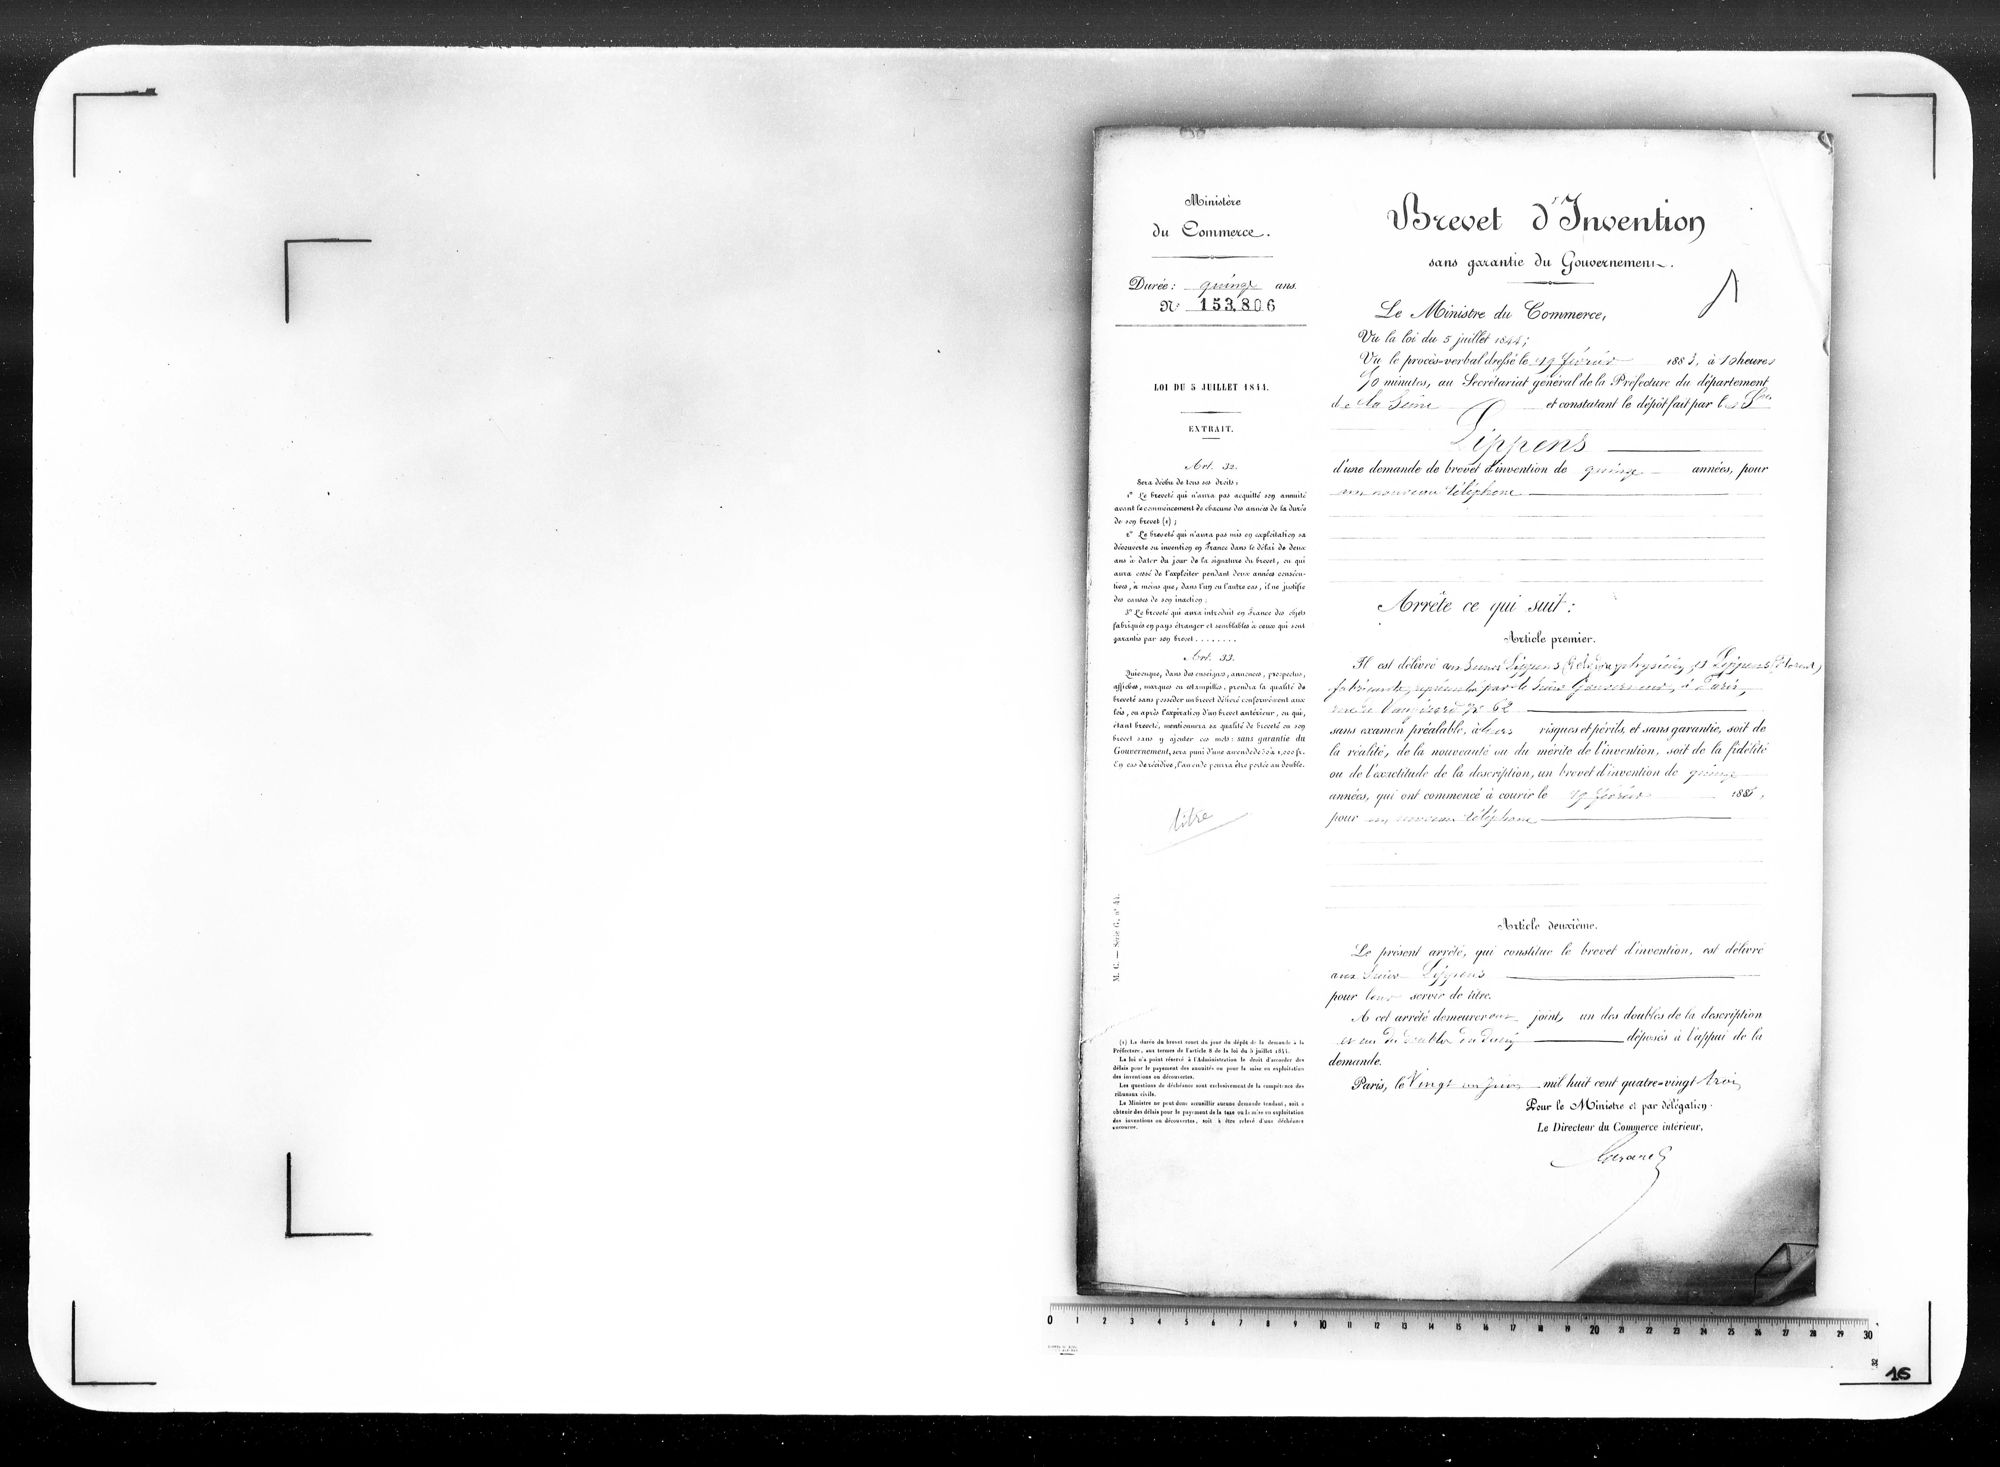 Ministère
du Commerce.
Durée : quinze ans.
N° 153,806
LOI DU 5 JUILLET 1844.
EXTRAIT.
Art. 32.
Sera déchu de tous ses droits :
1° Le breveté qui n'aura pas acquitté son annuité
avant le commencement de chacune des années de la durée
de son brevet (1) ;
2° Le breveté qui n'aura pas mis en exploitation sa
découverte ou invention en France dans le délai de deux
ans à dater du jour de la signature du brevet, ou qui
aura cessé de l'exploiter pendant deux années consécu-
tives, à moins que, dans l'un ou l'autre cas, il ne justifie
des causes de son inaction ;
3° Le breveté qui aura introduit en France des objets
fabriqués en pays étranger et semblables à ceux qui sont
garantis par son brevet ........
Art. 33.
Quiconque, dans des enseignes, annonces, prospectus,
affiches, marques ou estampilles, prendra la qualité de
breveté sans posséder un brevet délivré conformément aux
lois, ou après l'expiration d'un brevet antérieur, ou qui,
étant breveté, mentionnera sa qualité de breveté ou son
brevet sans y ajouter ces mots : sans garantie du
Gouvernement, sera puni d'une amende de 50 à 1,000 fr.
En cas de récidive, l'amende pourra être portée au double.
titre
M. C. — Série G, n° 44.
(1) La durée du brevet court du jour du dépôt de la demande à la
Préfecture, aux termes de l'article 8 de la loi du 5 juillet 1844.
La loi n'a point réservé à l'Administration le droit d'accorder des
délais pour le payement des annuités ou pour la mise en exploitation
des inventions ou découvertes.
Les questions de déchéance sont exclusivement de la compétence des
tribunaux civils.
Le Ministre ne peut donc accueillir aucune demande tendant, soit à
obtenir des délais pour le payement de la taxe ou la mise en exploitation
des inventions ou découvertes, soit à être relevé d'une déchéance
encourue.
Brevet d'Invention
sans garantie du Gouvernement.
Le Ministre du Commerce,
Vu la loi du 5 juillet 1844 ;
Vu le procès-verbal dressé le 19 février 1883, à heures
minutes, au Secrétariat général de la Préfecture du département
de la Seine et constatant le dépôt fait par les Srs
Lippens
d'une demande de brevet d'invention de quinze années, pour
un nouveau téléphone
Arrête ce qui suit :
Article premier.
Il est délivré aux Sieurs Lippens physicien, et Lippens
fabricant, représentés par le Sieur à Paris,
rue de Vaugirard n° 62
sans examen préalable, à leurs risques et périls, et sans garantie, soit de
la réalité, de la nouveauté ou du mérite de l'invention, soit de la fidélité
ou de l'exactitude de la description, un brevet d'invention de quinze
années, qui ont commencé à courir le 19 février 1883,
pour un nouveau téléphone
Article deuxième.
Le présent arrêté, qui constitue le brevet d'invention, est délivré
aux Sieurs Lippens
pour leur servir de titre.
A cet arrêté demeureront joints un des doubles de la description
et un des doubles du dessin déposés à l'appui de la
demande.
Paris, le Vingt un juin mil huit cent quatre-vingt trois
Pour le Ministre et par délégation.
Le Directeur du Commerce intérieur,
0 1 2 3 4 5 6 7 8 9 10 11 12 13 14 15 16 17 18 19 20 21 22 23 24 25 26 27 28 29 30
16